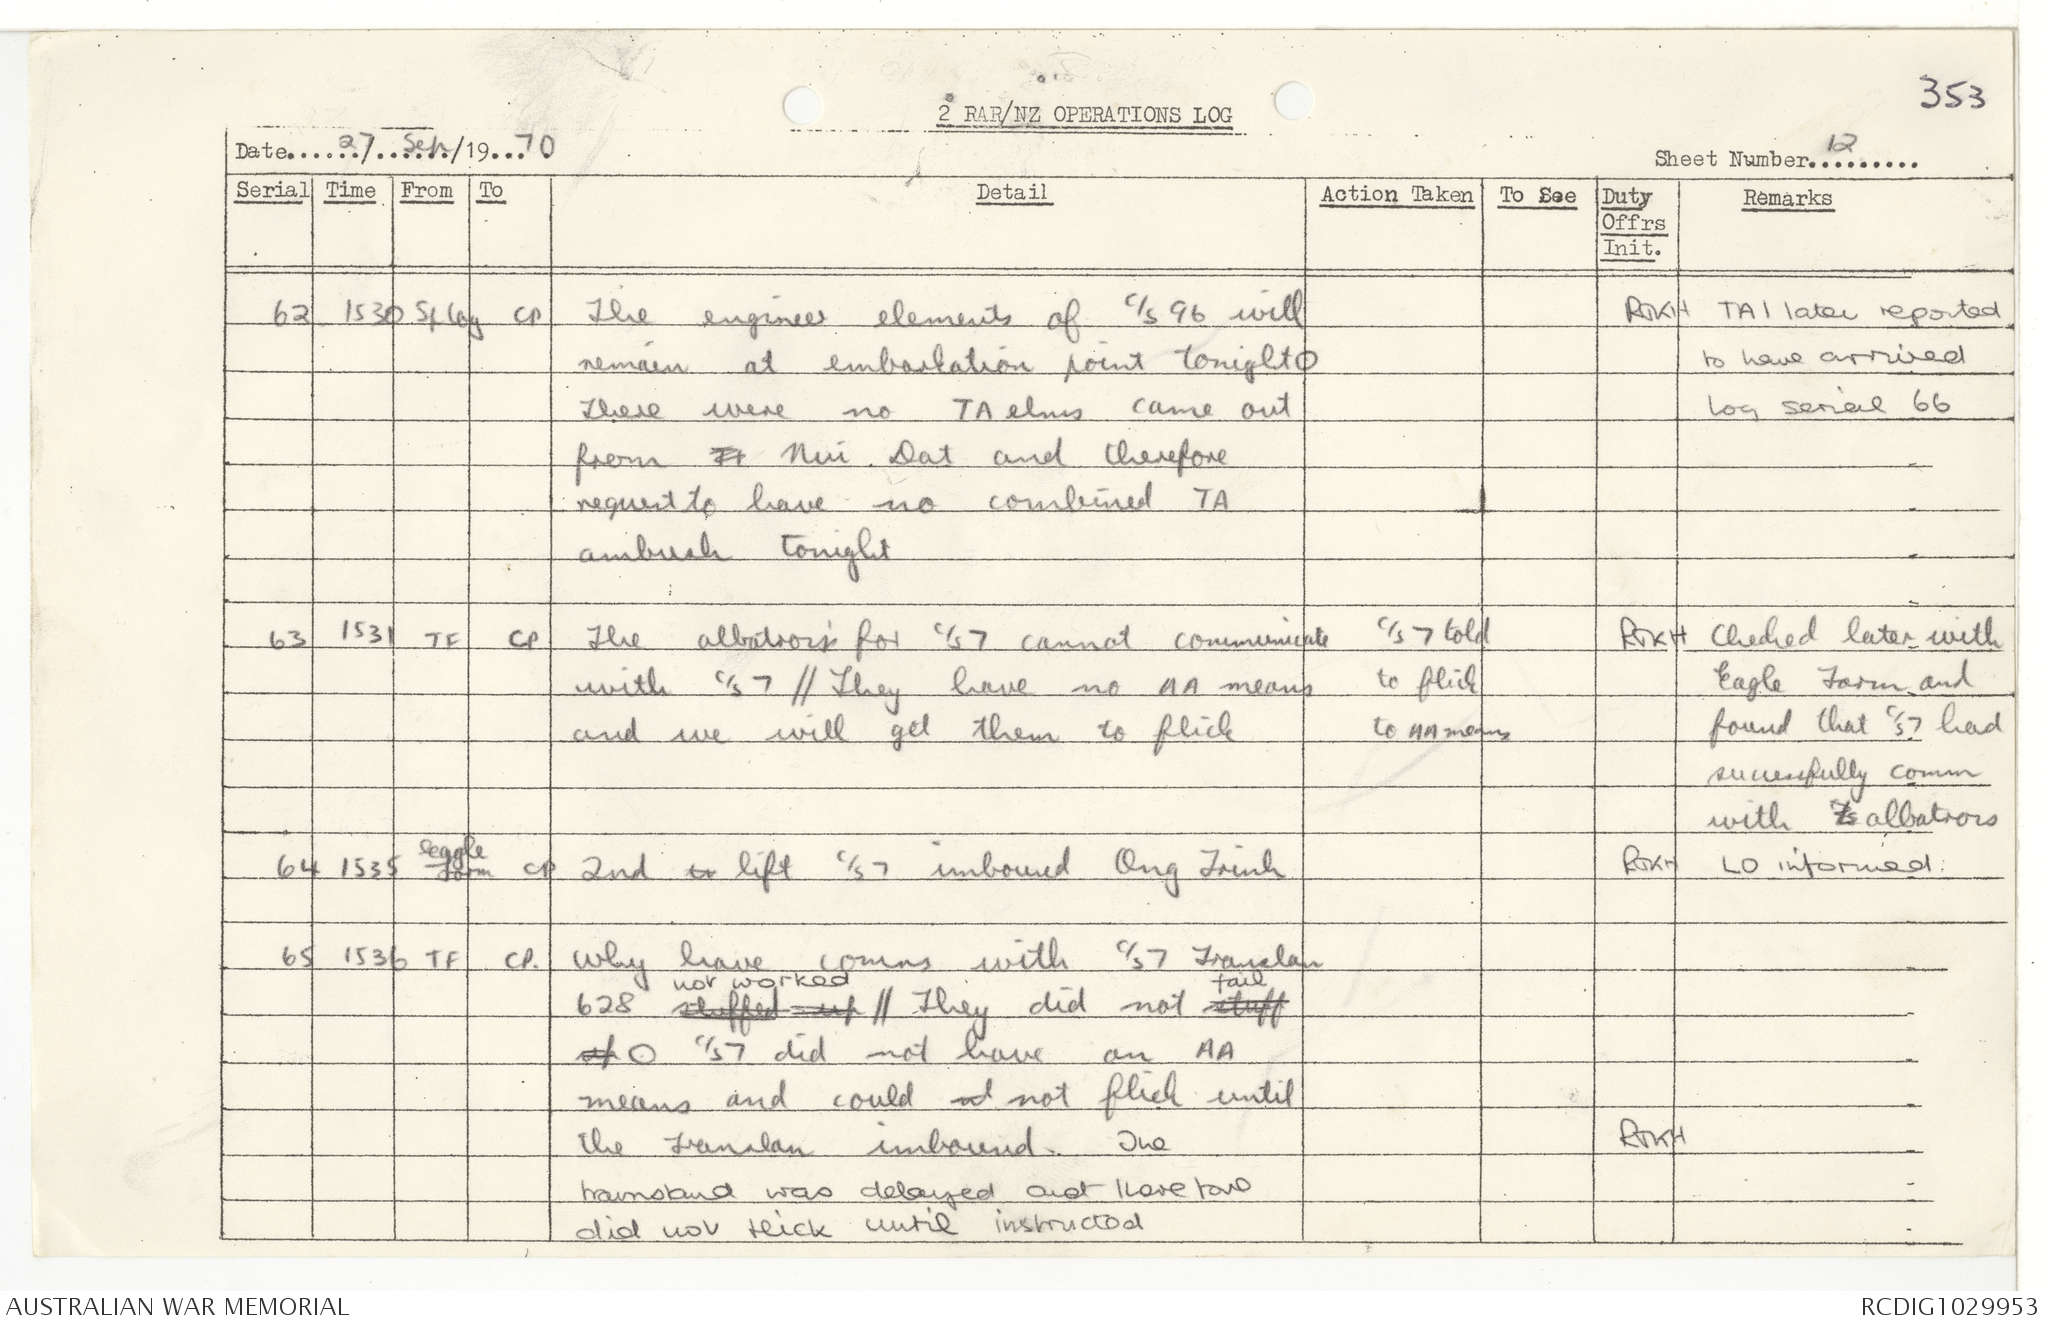 353
2 RAR/NZ OPERATIONS LOG
Date......27/...Sep.../19...70
Sheet Number 12.........
Serial Time From To Detail Action Taken To See Duty Offrs Init. Remarks
62 1530 CP The engineer elements of C/S 96 will RJKH TA1 later reported
remain at embarkation point tonight O to have arrived
There were no TA elms came out log serial 66
from Nui Dat and therefore
request to have no combined TA
ambush tonight
63 1531 TF CP The albatross for C/S 7 cannot communicate C/S 7 told RJKH Checked later with
with C/S 7 // They have no AA means to flick Eagle Farm and
and we will get them to flick to AA means found that C/S 7 had
successfully comm
with albatross
64 1535 Eagle Farm CP 2nd lift C/S 7 inbound Ong Trinh RJKH LO informed.
65 1536 TF CP. Why have comms with C/S 7 Translan
not worked fail
628 stuffed up // They did not stuff
up O C/S 7 did not have an AA
means and could not flick until
the Translan inbound. The RJKH
was delayed and therefore
did not flick until instructed
AUSTRALIAN WAR MEMORIAL RCDIG1029953